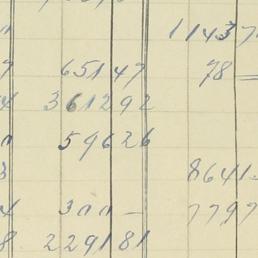 11437
7 65147 78 =
4 361292
59626
3 8641
4 300 — 7797
8 229181